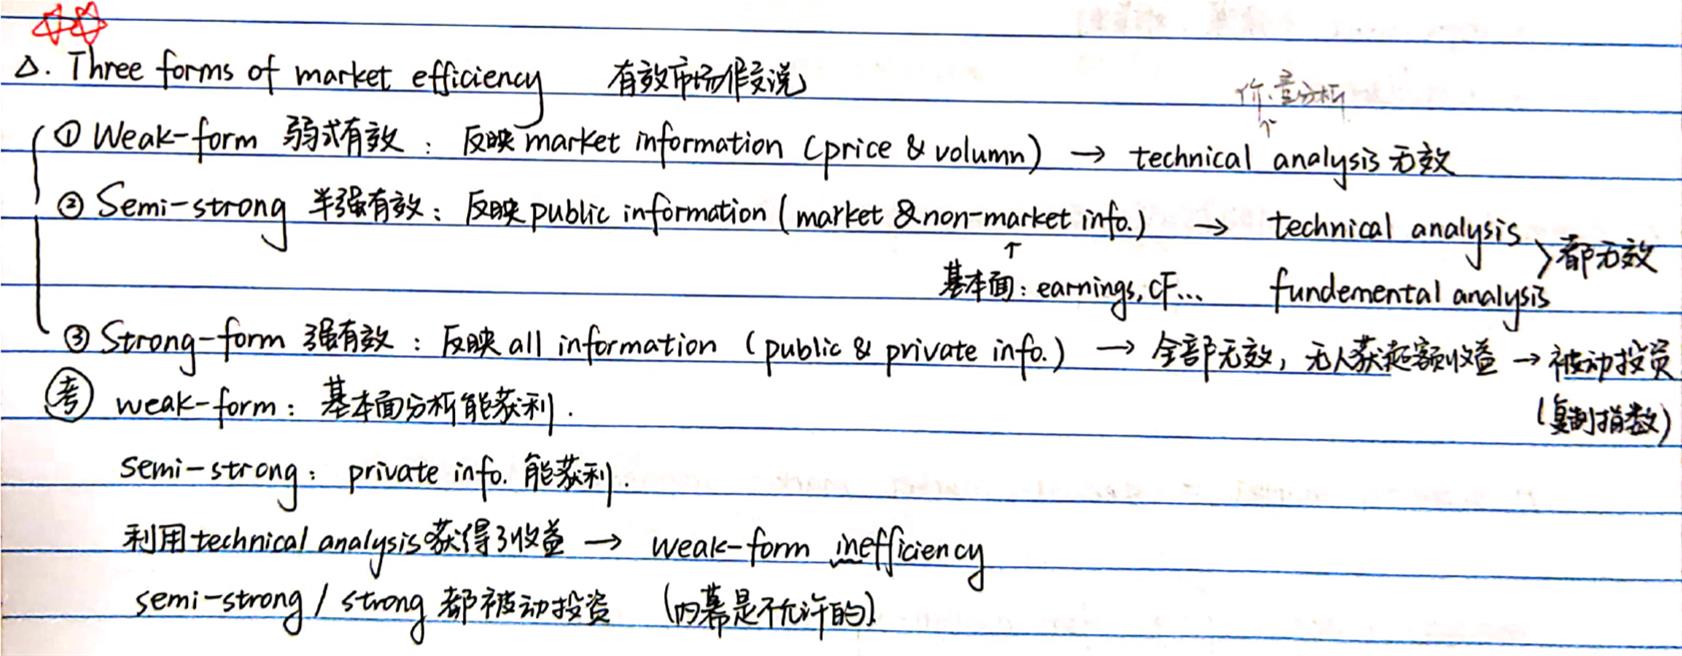 △. Three forms of market efficiency 有效市场假说
价.量分析
↑
① Weak-form 弱式有效：反映 market information (price & volumn) → technical analysis 无效
② Semi-strong 半强有效：反映 public information (market & non-market info.) → technical analysis 〉都无效
↑
基本面：earnings, CF... fundemental analysis
③ Strong-form 强有效：反映 all information (public & private info.) → 全部无效，无人获超额收益 → 被动投资
(复制指数)
考 weak-form：基本面分析能获利.
semi-strong：private info. 能获利.
利用 technical analysis 获得了收益 → weak-form inefficiency
semi-strong / strong 都被动投资 (内幕是不允许的)